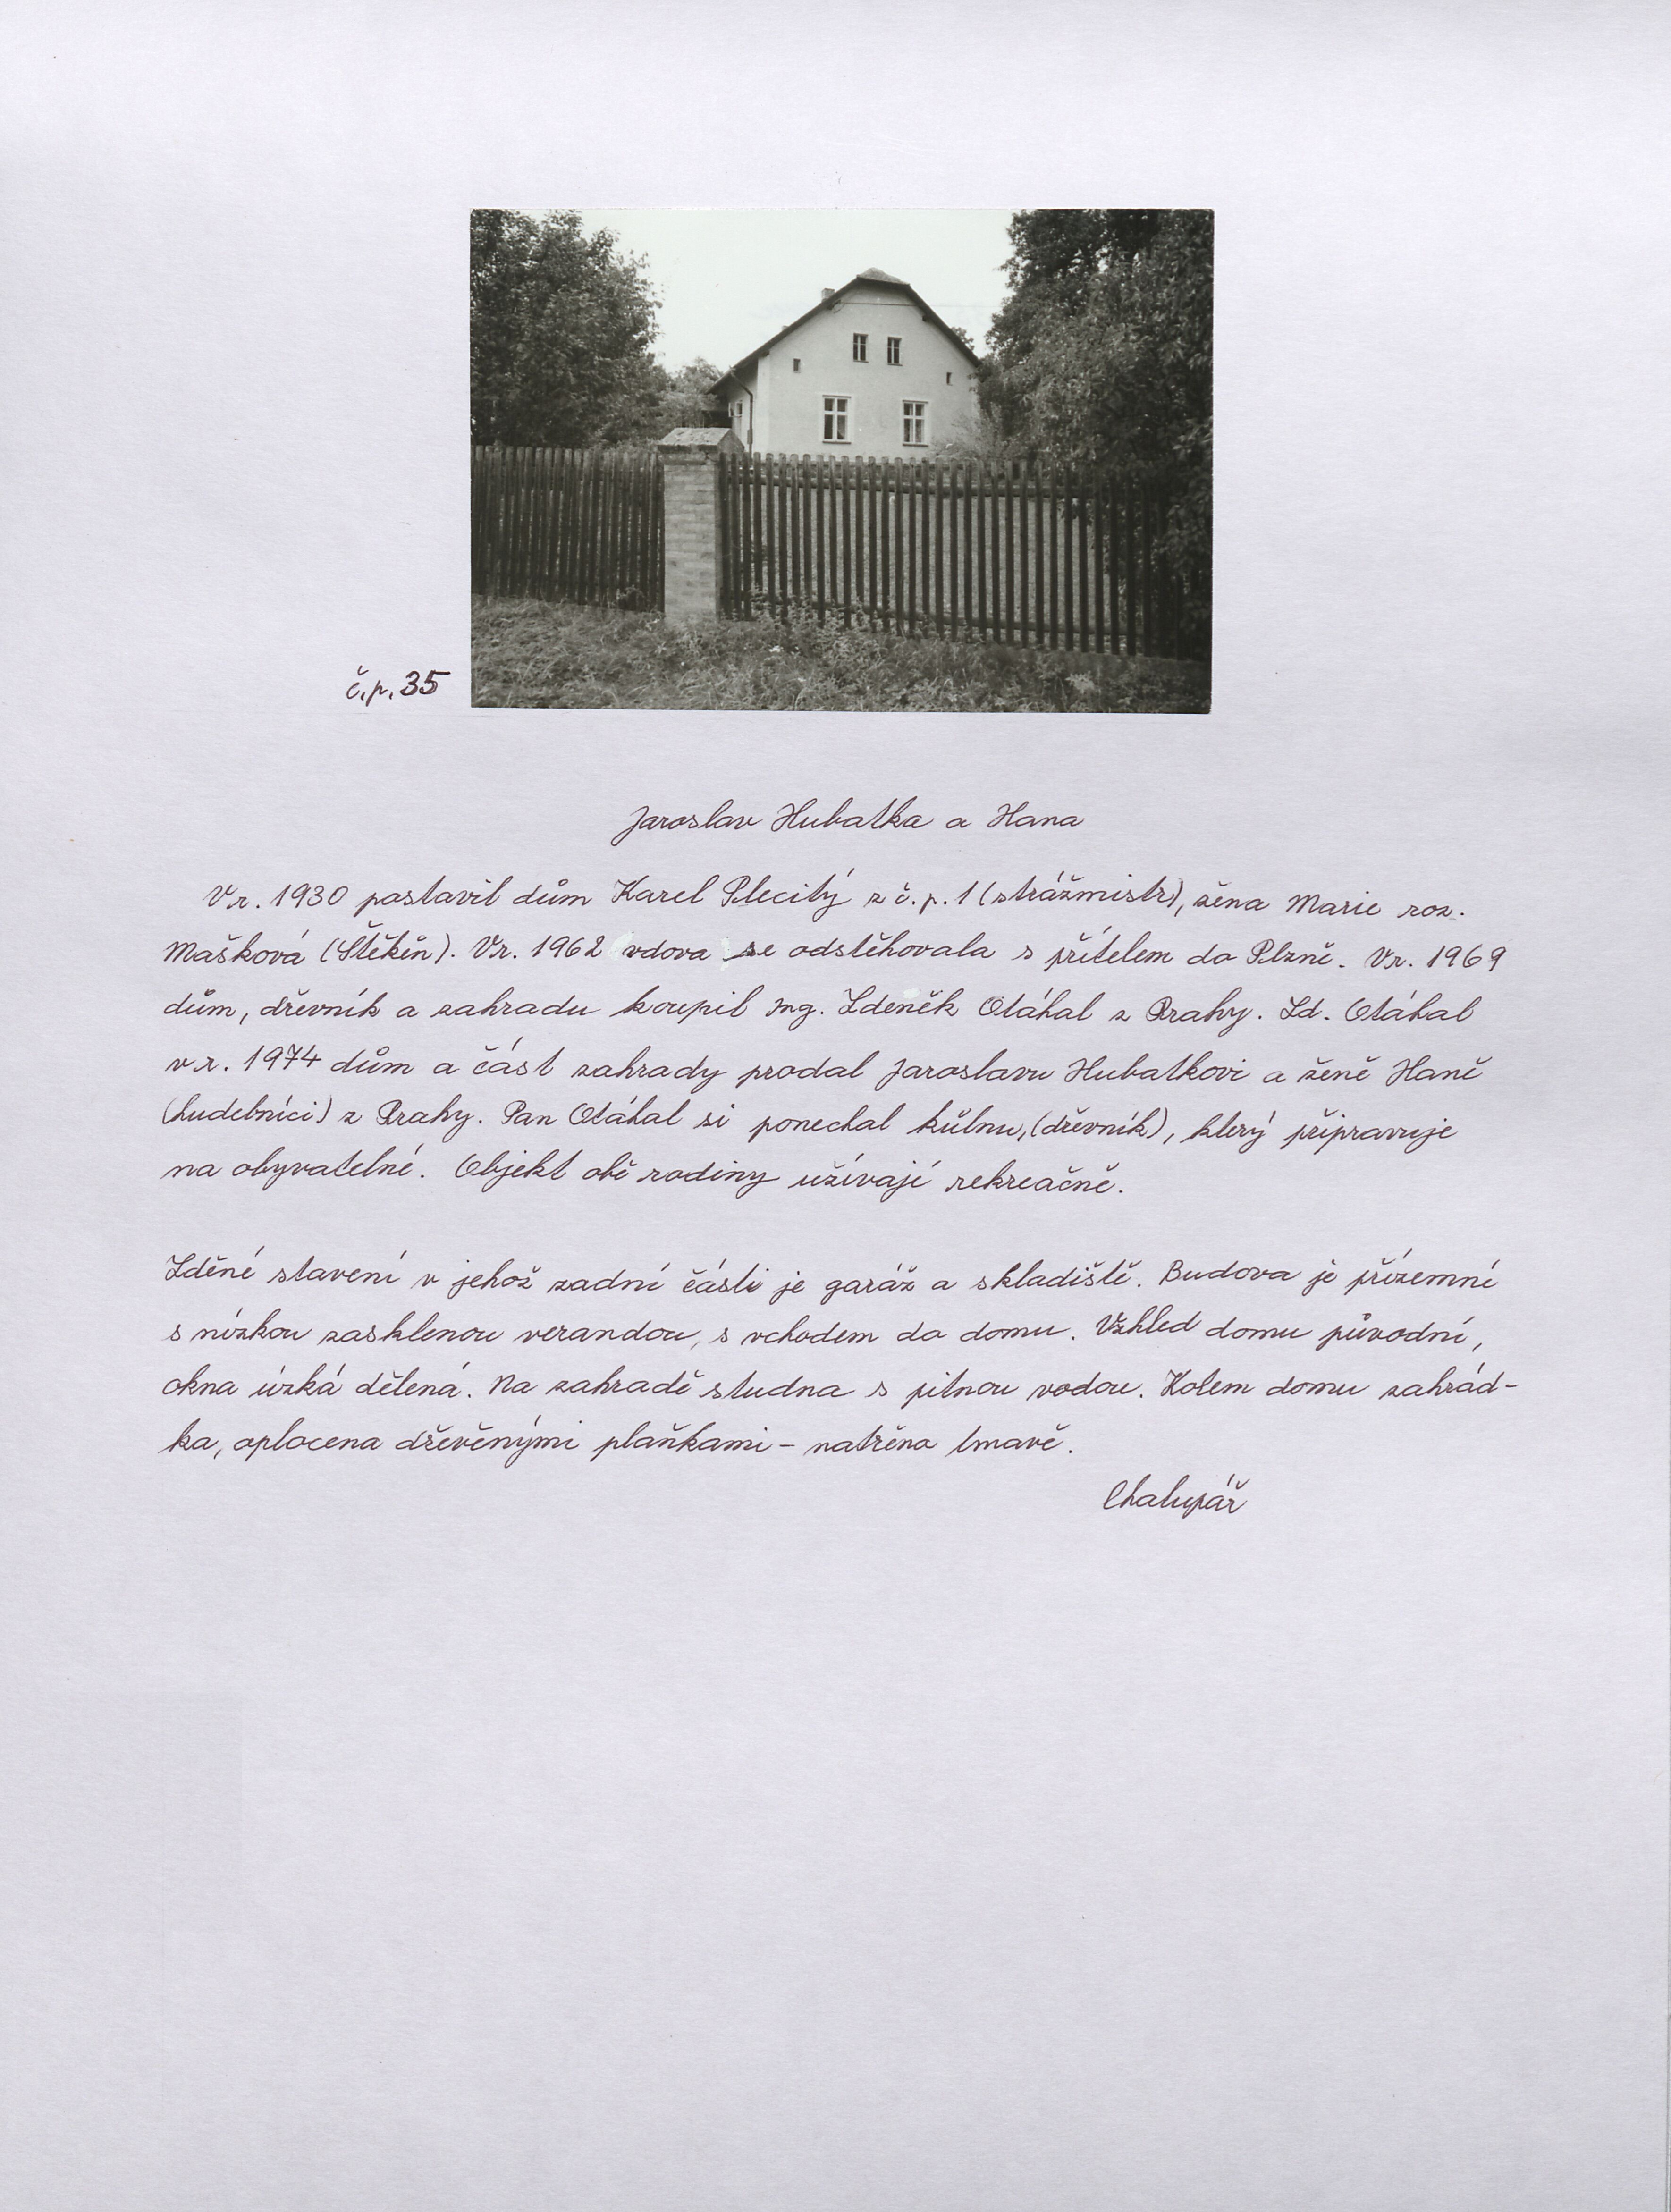 č.p. 35
Jaroslav Hubatka a Hana
V r. 1930 postavil dům Karel Plecitý z č.p. 1 (strážmistr), žena Marie roz.
Mašková (Štěkěn). V r. 1962 vdova se odstěhovala s přítelem do Plzně. V r. 1969
dům, dřevník a zahradu koupil ing. Zdeněk Otáhal z Prahy. Zd. Otáhal
v r. 1974 dům a část zahrady prodal Jaroslavu Hubatkovi a ženě Haně
(hudebníci) z Prahy. Pan Otáhal si ponechal kůlnu, (dřevník), který připravuje
na obyvatelné. Objekt obě rodiny užívají rekreačně.
Zděné stavení v jehož zadní části je garáž a skladiště. Budova je přízemní
s nízkou zasklenou verandou, s vchodem do domu. Vzhled domu původní,
okna úzká dělená. Na zahradě studna s pitnou vodou. Kolem domu zahrád-
ka, oplocena dřevěnými plaňkami - natřena tmavě.
Chalupář